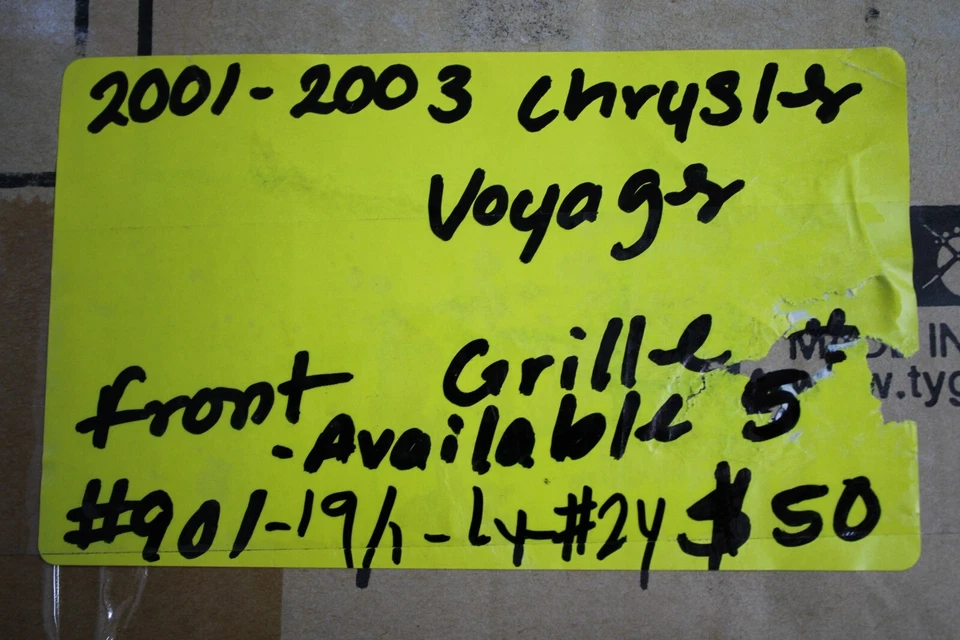 2001-2003 Chrysler
Voyager
MADE IN
w.tyg
front Grille #
-Available 5
#901-19/1-L4-#24 $50